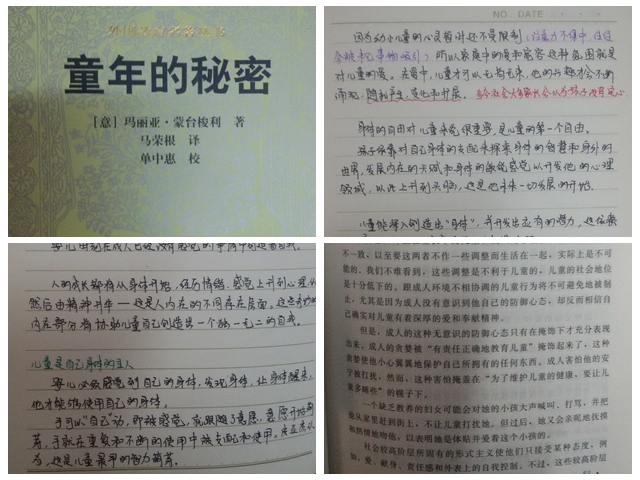 外国教育名著丛书
童年的秘密
[意] 玛丽亚·蒙台梭利 著
马荣根 译
单中惠 校
NO. DATE
因为幼小儿童的心灵暂时还不受限制
所以家庭中的爱和宽容这种氛围就是
对儿童的爱。
儿童才可以无拘无束，他的兴趣才会不断
涌现，随机产生、变化和开展。
身体的自由对儿童来说很重要，是儿童的第一个自由。
孩子依靠对自己身体的支配来探索身体的智慧和身外的
世界，发展内在的天赋和身体的敏锐感觉以开发他的心理
领域，以此上升到头脑，这是他未来一切发展的开始。
儿童能深入创造出“身体”，并开发出应有的潜力，这依靠
人的成长都有从身体开始，经历情绪、感觉上升到心理
然后由精神
这是人内在的不同存在层面，这些
内在部分有协助儿童自己创造出一个独一无二的自我。
儿童是自己身体的主人
婴儿必须感觉到自己的身体，发现身体，让身体醒来，
他才能够使用自己的身体。
手可以“自己”动，即被感觉，就跟随了意愿，意愿开始萌
芽，手就在重复和不断的使用中被支配和使用，
为，这是儿童最早的智力萌芽。
不一致，以至要这两者不作一些调整而生活在一起，实际上是不可
能的。我们不难看到，这些调整是不利于儿童的，儿童的社会地位
是十分低下的。跟成人环境不相协调的儿童行为将不可避免地被制
止，尤其是因为成人没有意识到他自己的防御心态，却反而相信自
己确实对儿童有着深厚的爱和奉献精神。
但是，成人的这种无意识的防御心态只有在掩饰下才充分表现
出来。成人的贪婪被“有责任正确地教育儿童”掩饰起来了，这种
贪婪使他小心翼翼地保护自己所拥有的任何东西。成人害怕他的安
宁被打扰，然而，这种害怕掩盖在“为了维护儿童的健康，要让儿
童多睡些”的幌子下。
一个缺乏教养的妇女可能会对她的小孩大声喊叫、打骂，并把
他从家里赶到街上，不让儿童打扰她。但过后，她又会亲昵地抚摸
和热情地吻他，以表明她是体贴并爱着这个小孩的。
社会较高阶层所固有的形式主义使他们只接受某种态度，例
如，爱、献身、责任感和外表上的自我控制。不过，这些较高阶层